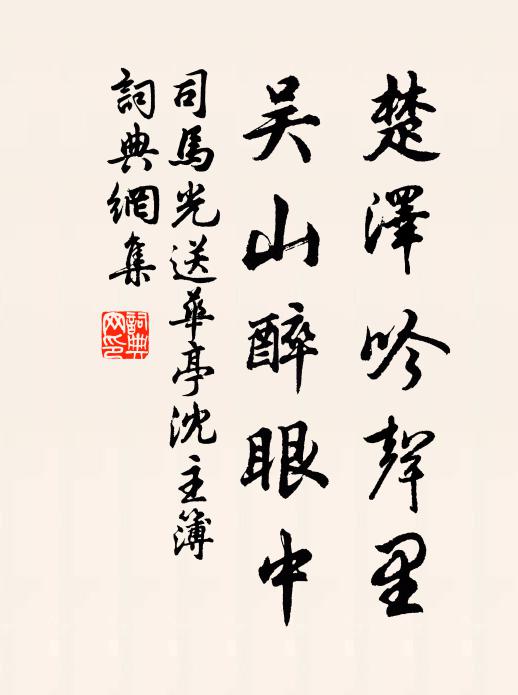 楚澤吟聲里
吴山醉眼中
司馬光送華亭沈主簿
詞典網集
詞典網印